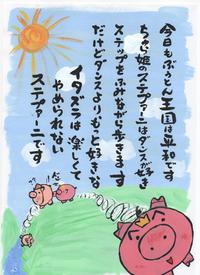 今日もぶうとん王国は平和です
ちぢら姫のステファーニはダンスが好き
ステップをふみながら歩きます
だけどダンスよりもっと好きな
イタズラは楽しくて
やめられない
ステファーニです